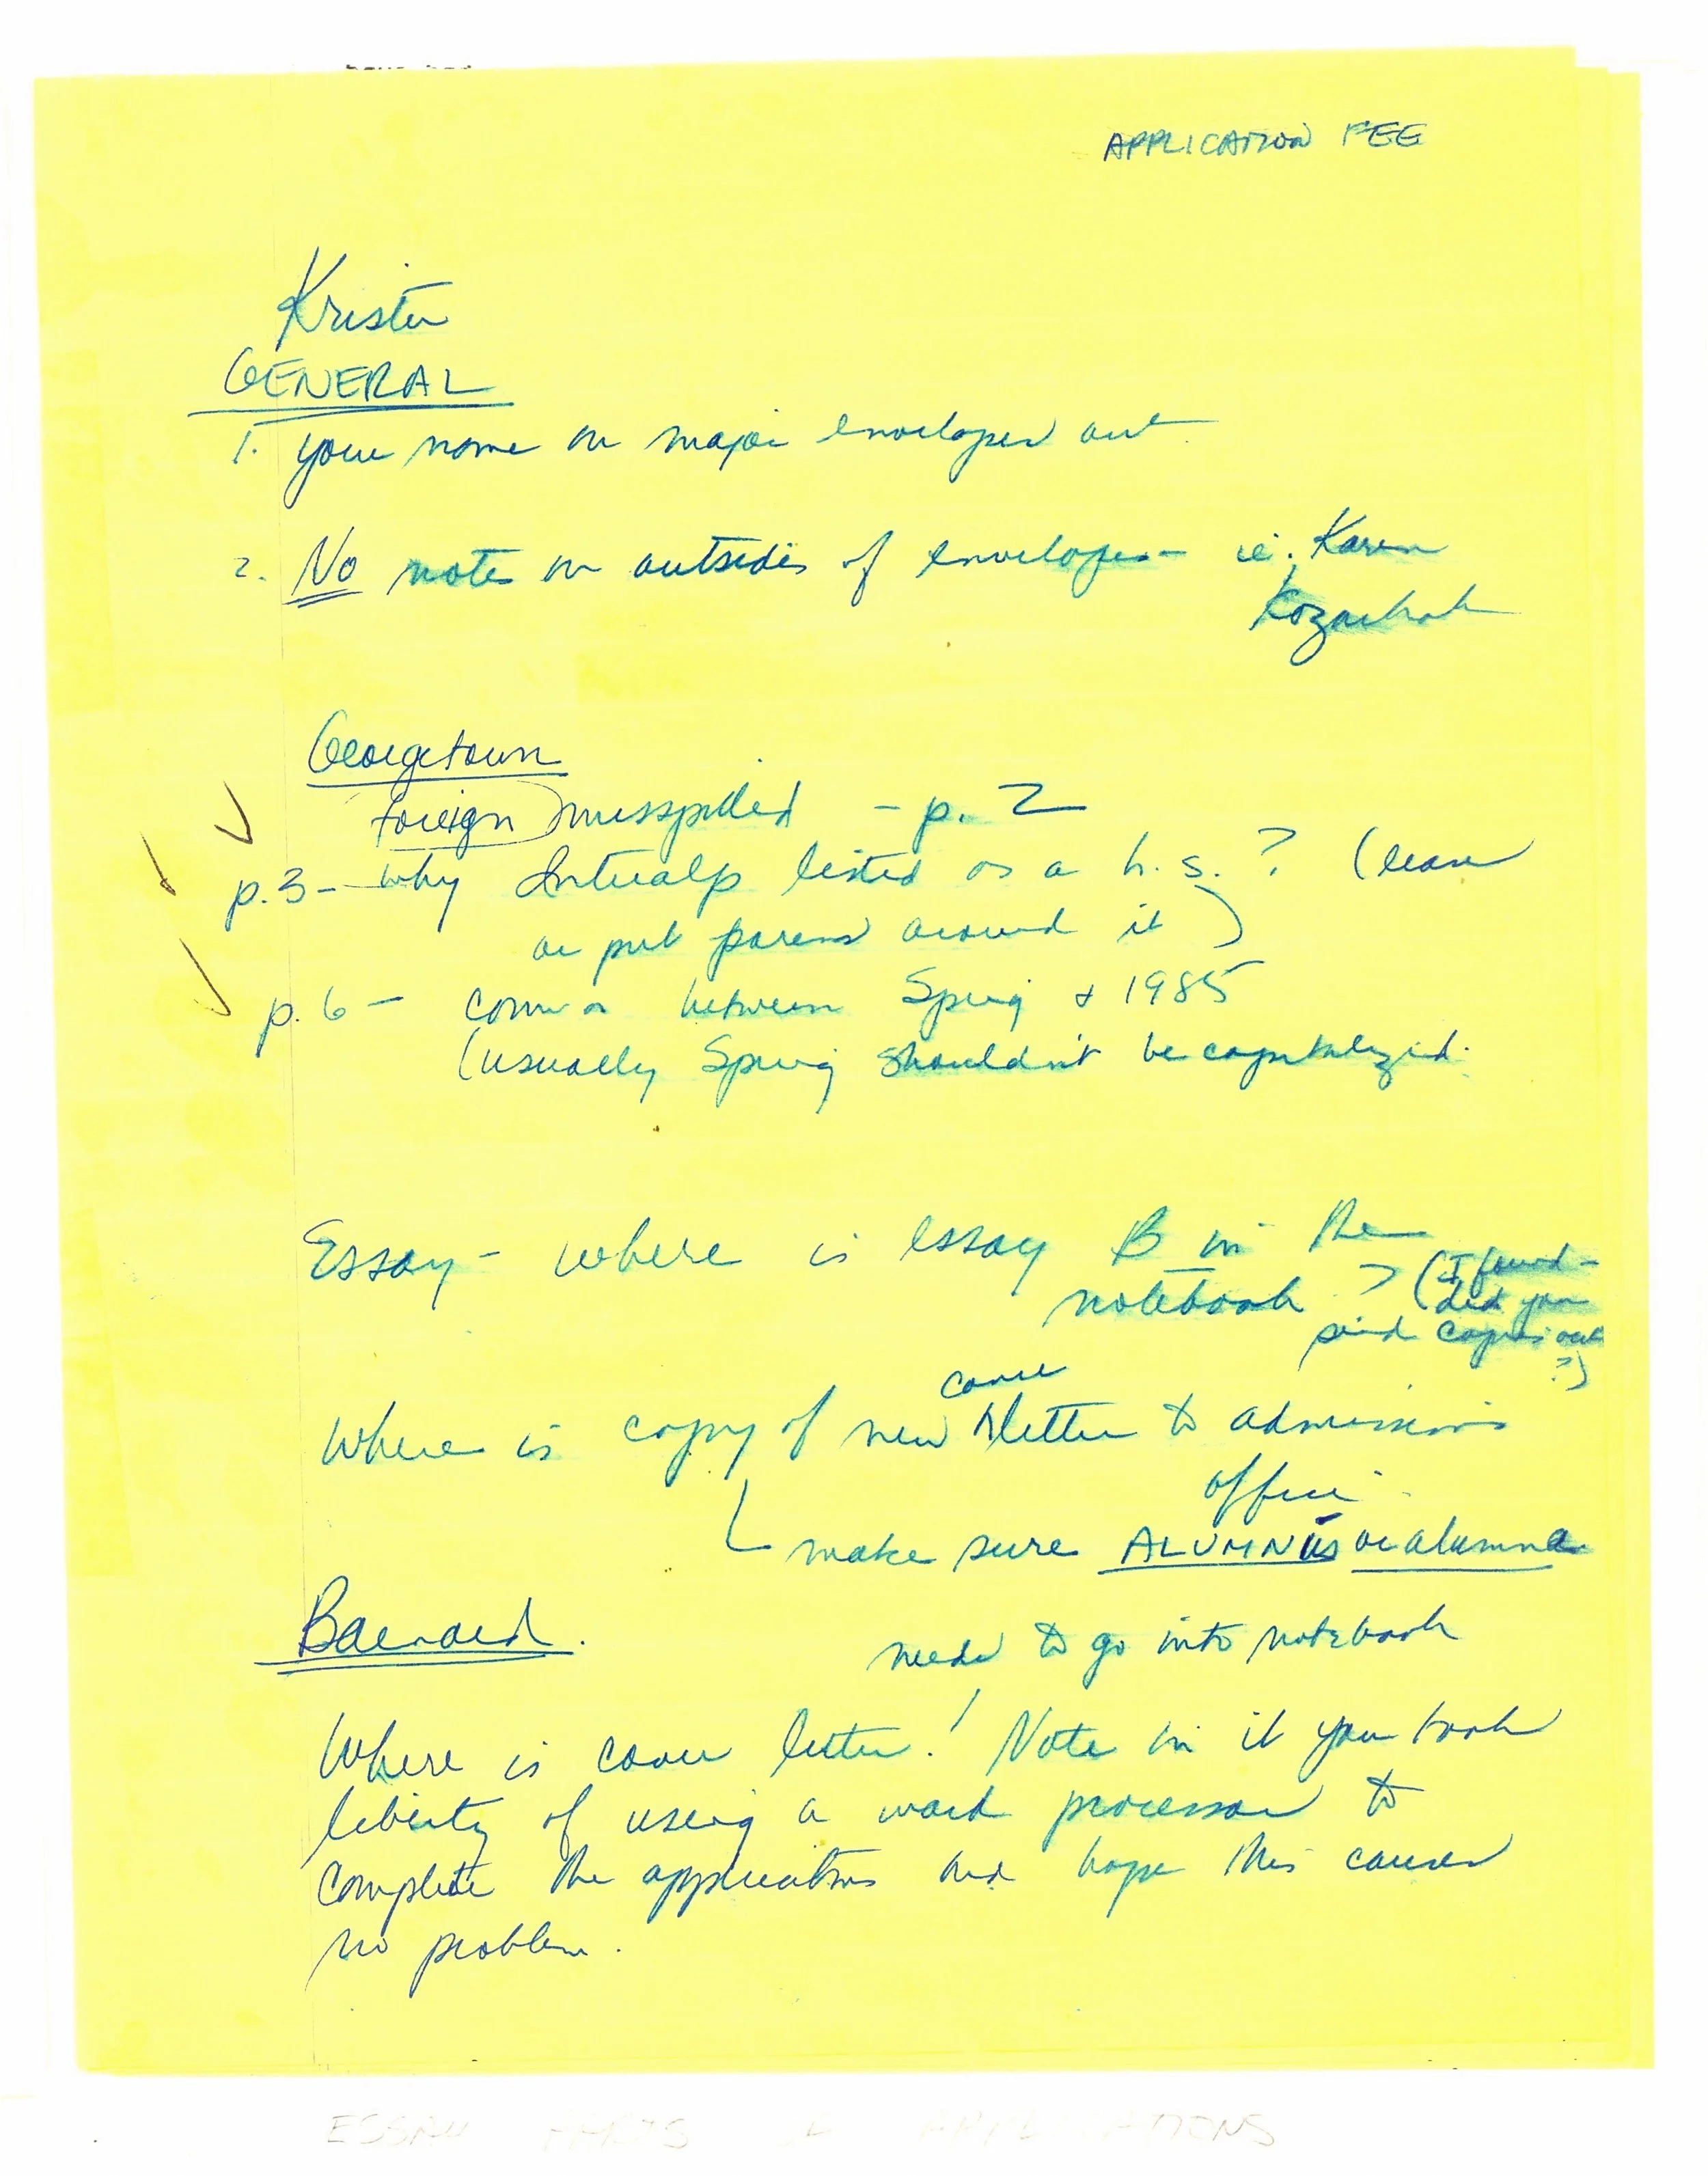 APPLICATION FEE
Kristen
GENERAL
1. your name on major envelopes out
2. No notes on outsides of envelopes - ie. Karen
Georgetown
foreign misspelled - p. 2
p.3 - why Interalp listed as a h.s.? (leave
or put parens around it)
p.6 - comma between Spring & 1985
(usually Spring shouldn't be capitalized.
Essay - where is essay B in the
notebook ? (I found -
did you
send copies out
?)
cover
Where is copy of new letter to admissions
office
make sure ALUMNUS or alumna
Barnard.
needs to go into notebook
Where is cover letter! Note in it you took
liberty of using a word processor to
complete the application and hope this causes
no problem.
ESSAY PARTS of APPLICATIONS